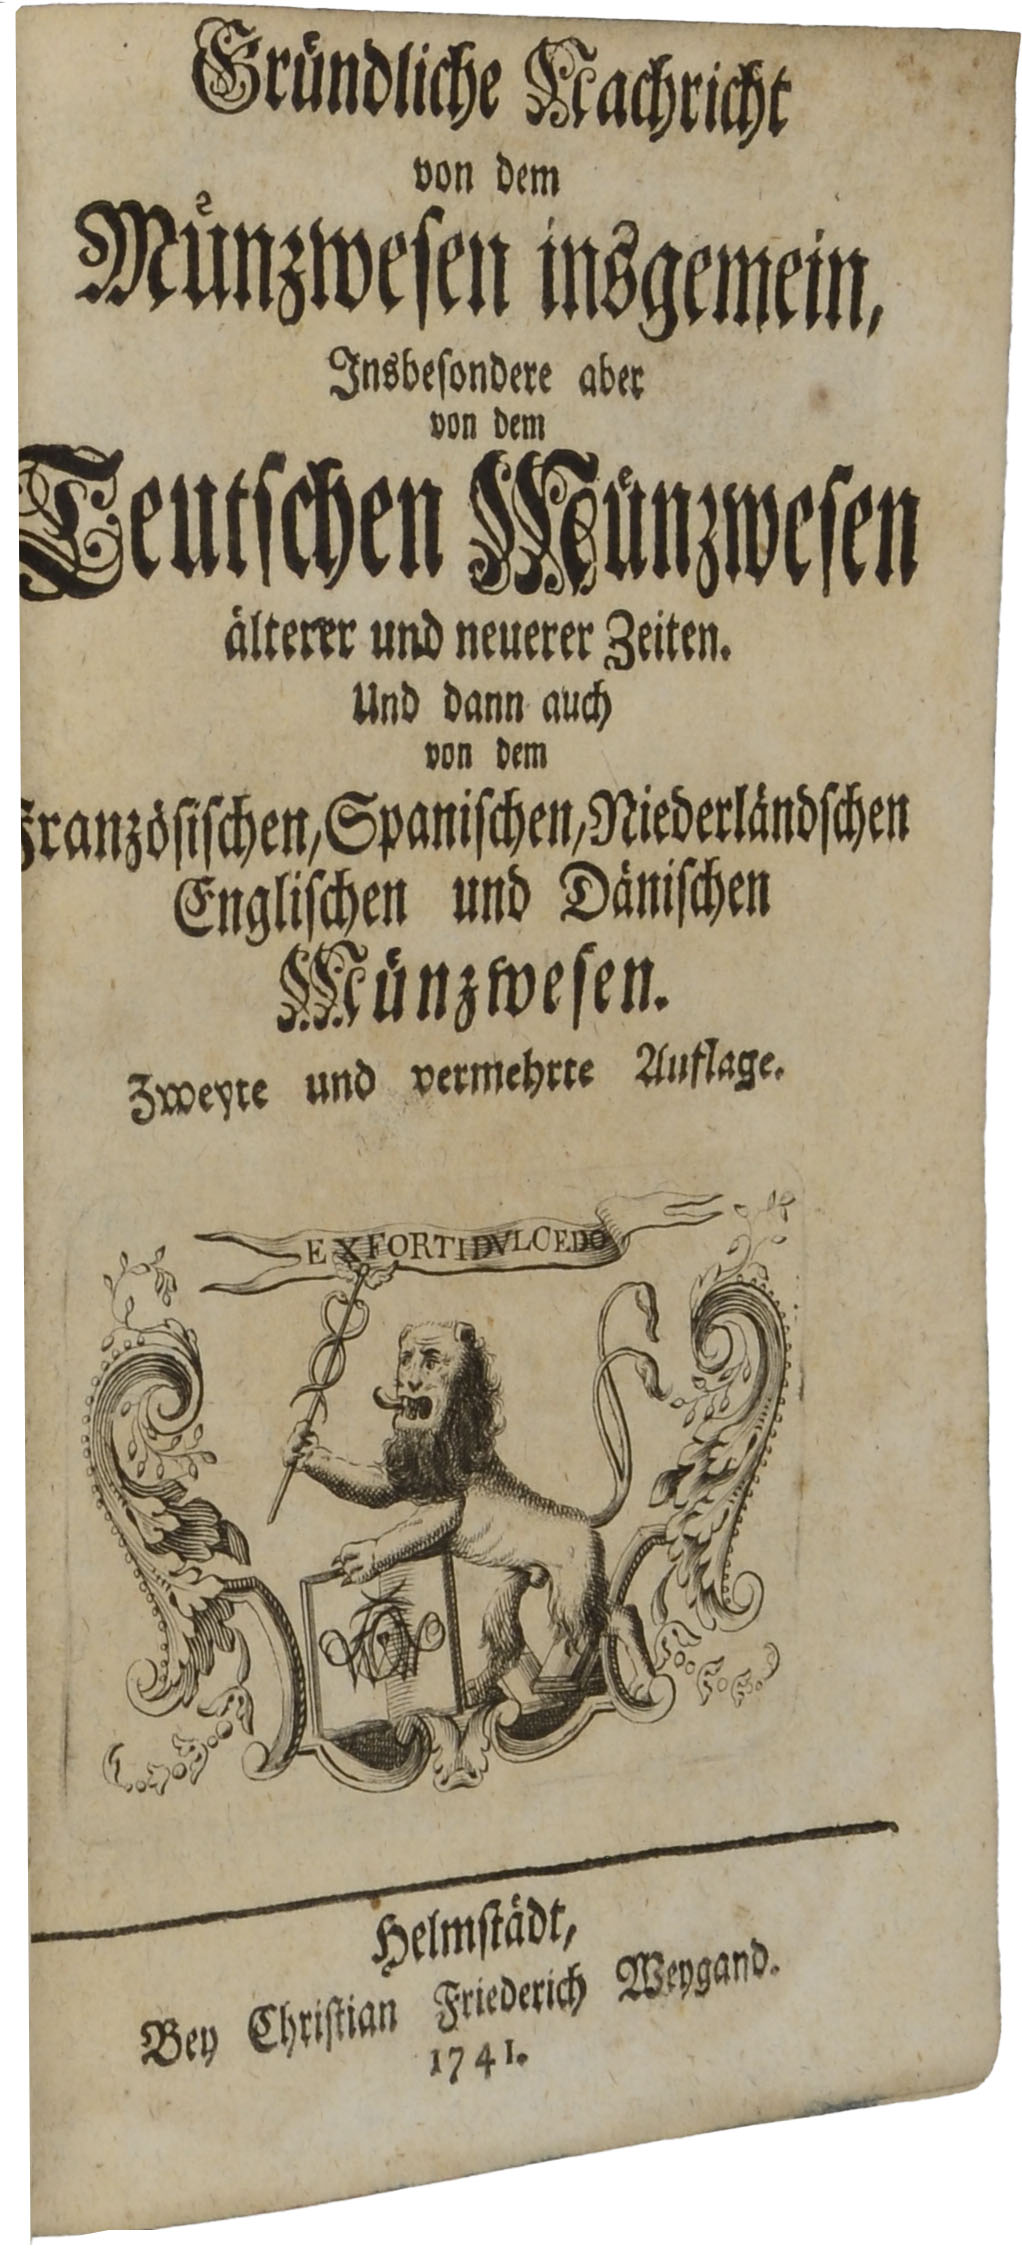 Gründliche Nachricht
von dem
Münzwesen insgemein,
Insbesondere aber
von dem
Teutschen Münzwesen
älterer und neuerer Zeiten.
Und dann auch
von dem
Französischen, Spanischen, Niederländschen
Englischen und Dänischen
Münzwesen.
Zweyte und vermehrte Auflage.
EX FORTI DVLCEDO
Helmstädt,
Bey Christian Friederich Weygand.
1741.